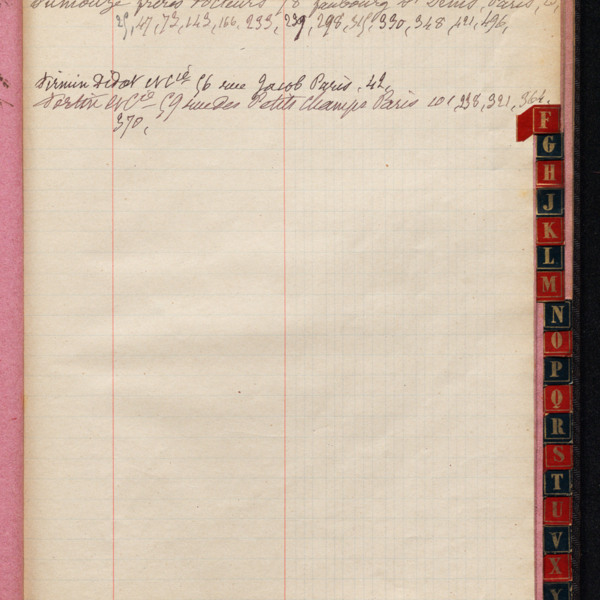 frères Docteurs 78 faubourg St Denis, Paris, 10,
29, 47, 73, 143, 166, 233, 239, 298, 315, 330, 348, 421, 496,
Firmin Didot et Cie 56 rue Jacob Paris, 42,
Fortin et Cie 59 rue des Petits Champs Paris 101, 238, 321, 364,
370,
F
G
H
J
K
L
M
N
O
P
Q
R
S
T
U
V
X
Y